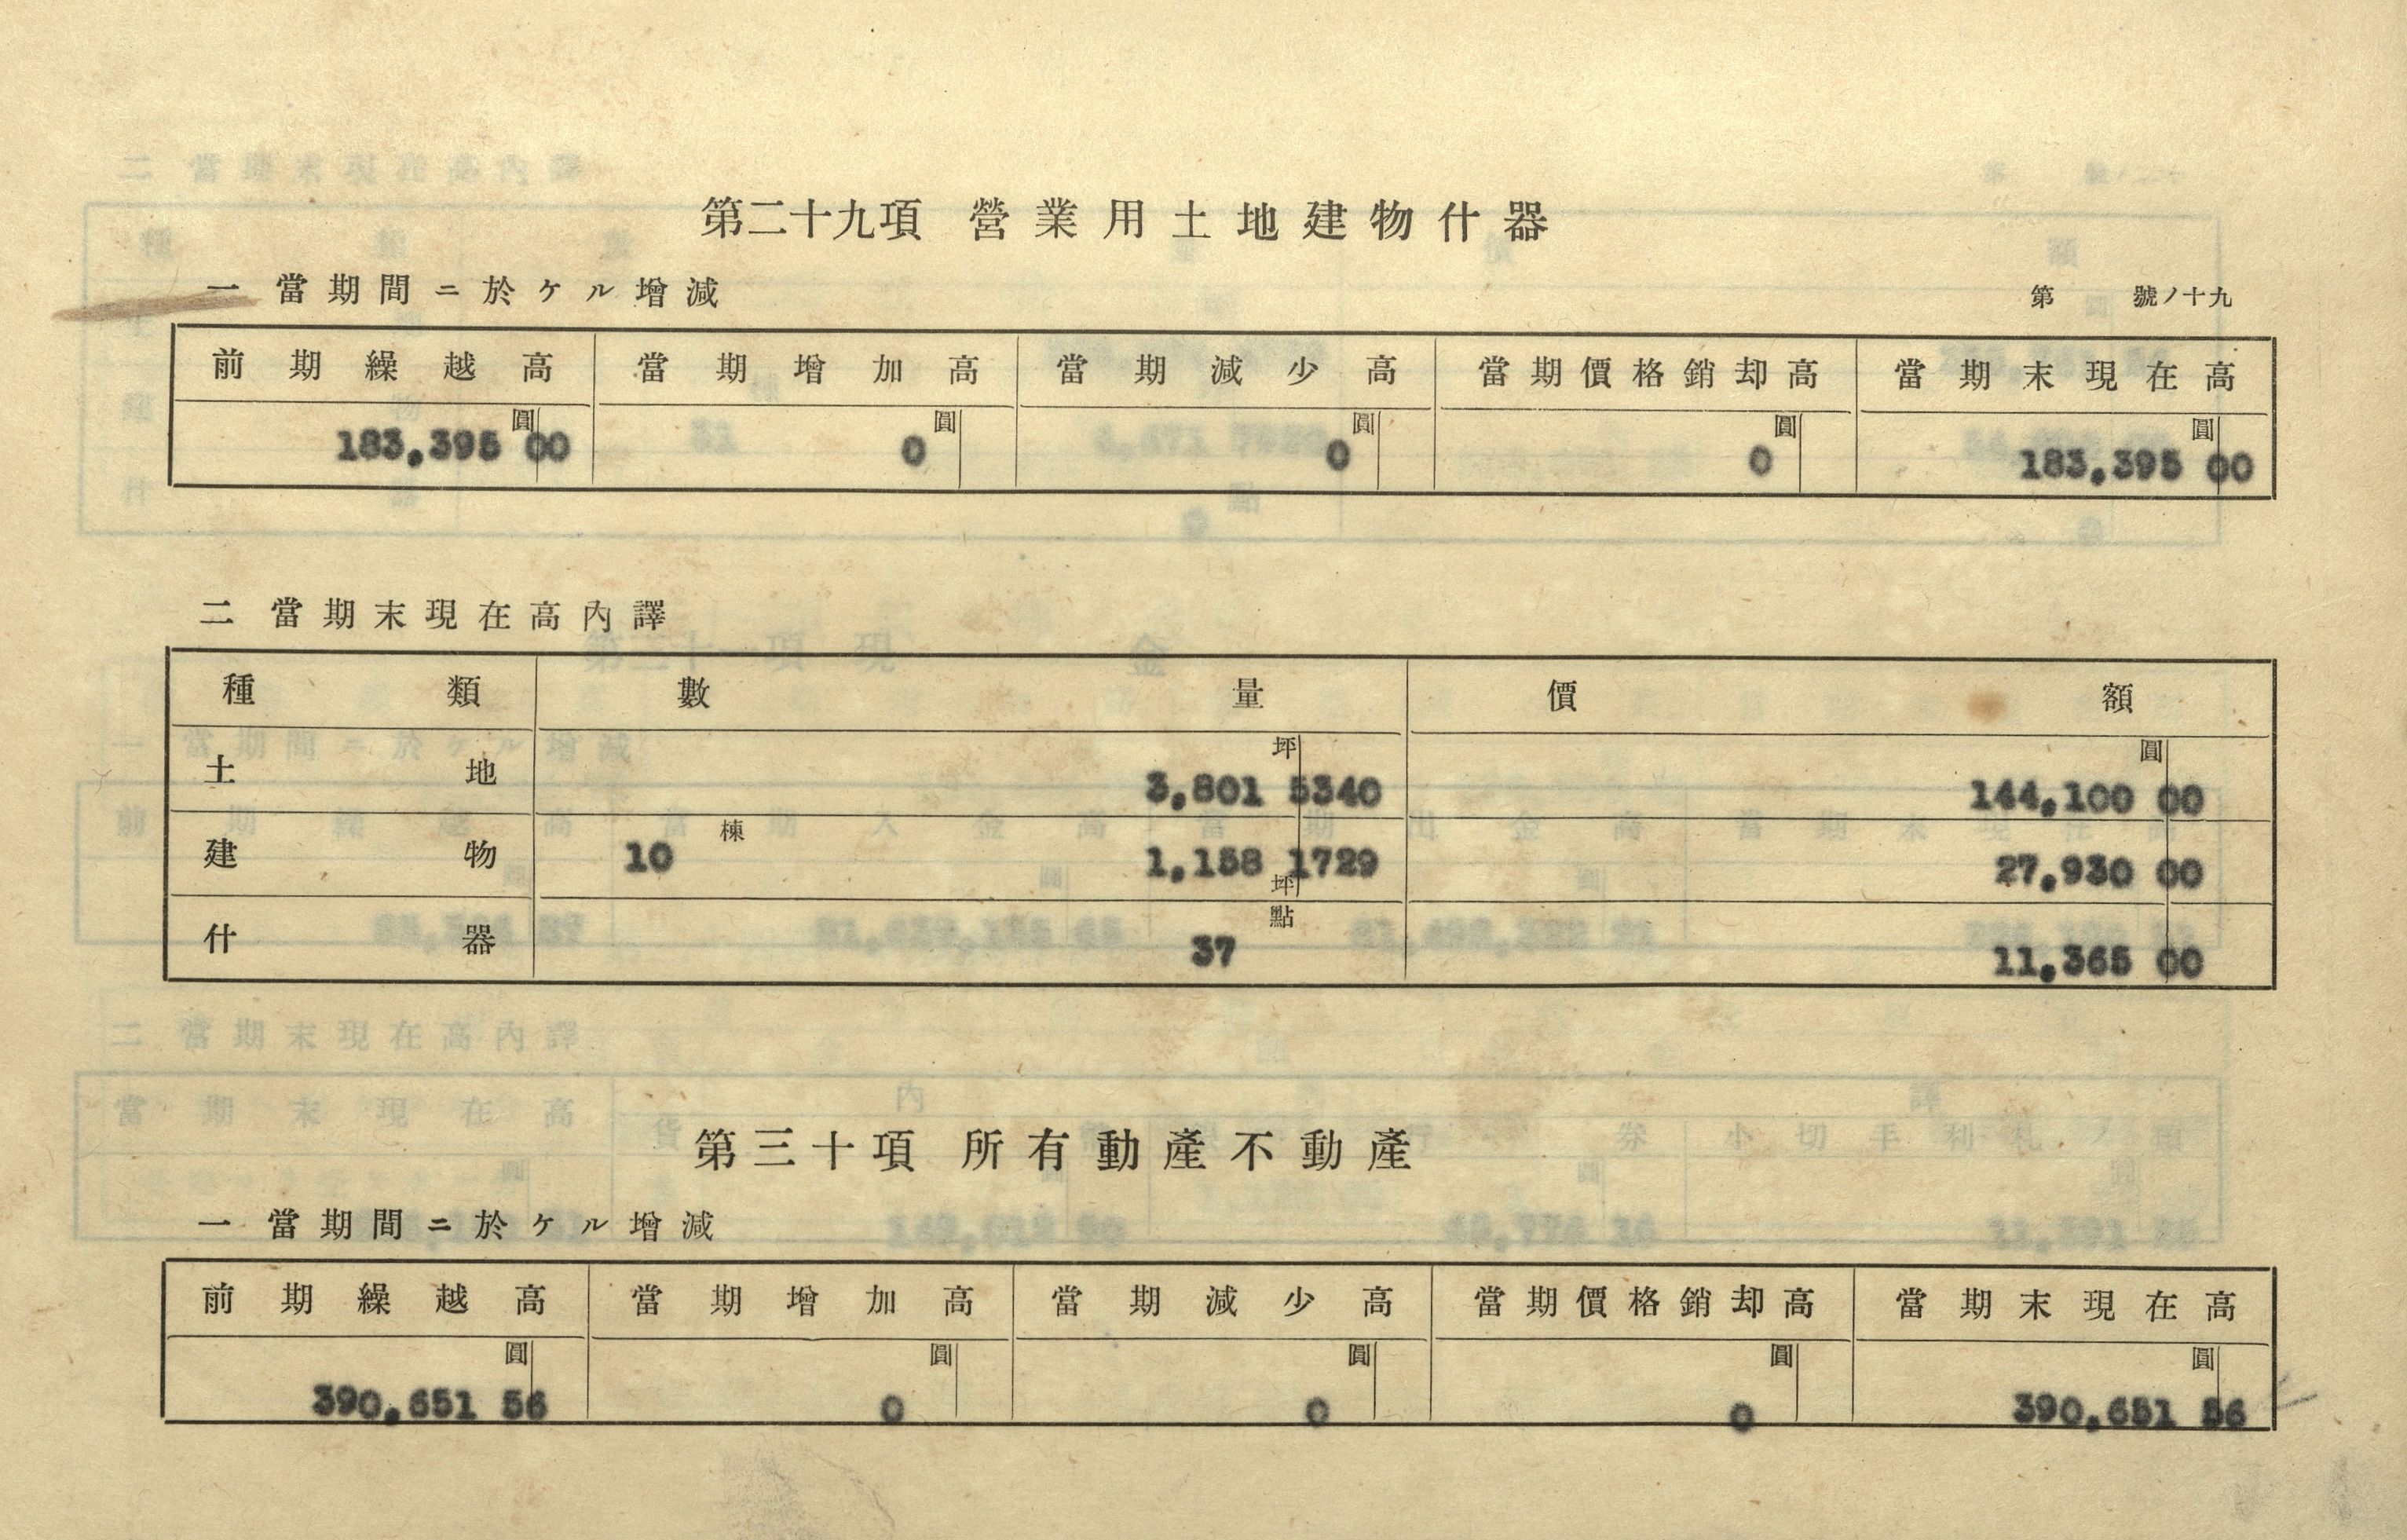 第二十九項 營業用土地建物什器
一 當期間ニ於ケル增減
第 號ノ十九
前期繰越高 當期增加高 當期減少高 當期價格銷却高 當期末現在高
圓 圓 圓 圓 圓
183,395 00 0 0 0 183,395 00
二 當期末現在高內譯
種類 數量 價額
坪 圓
土地 3,801 5340 144,100 00
棟
建物 10 1,158 1729 27,930 00
坪
點
什器 37 11,365 00
第三十項 所有動產不動產
一 當期間ニ於ケル增減
前期繰越高 當期增加高 當期減少高 當期價格銷却高 當期末現在高
圓 圓 圓 圓 圓
390,651 56 0 0 0 390,651 56